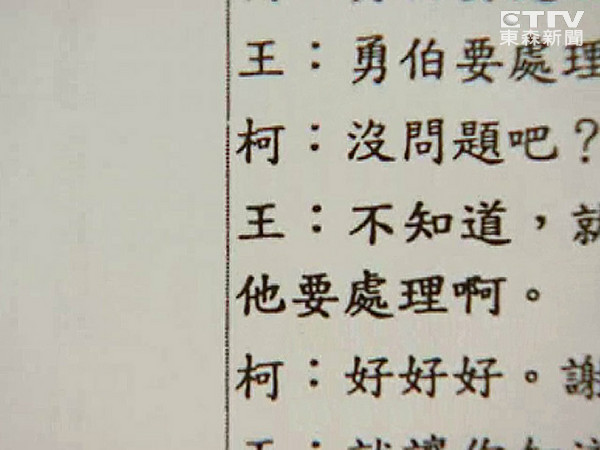 ETTV
東森新聞
王：勇伯要處理
柯：沒問題吧？
王：不知道，就
他要處理啊。
柯：好好好。謝
王：就讓你知道